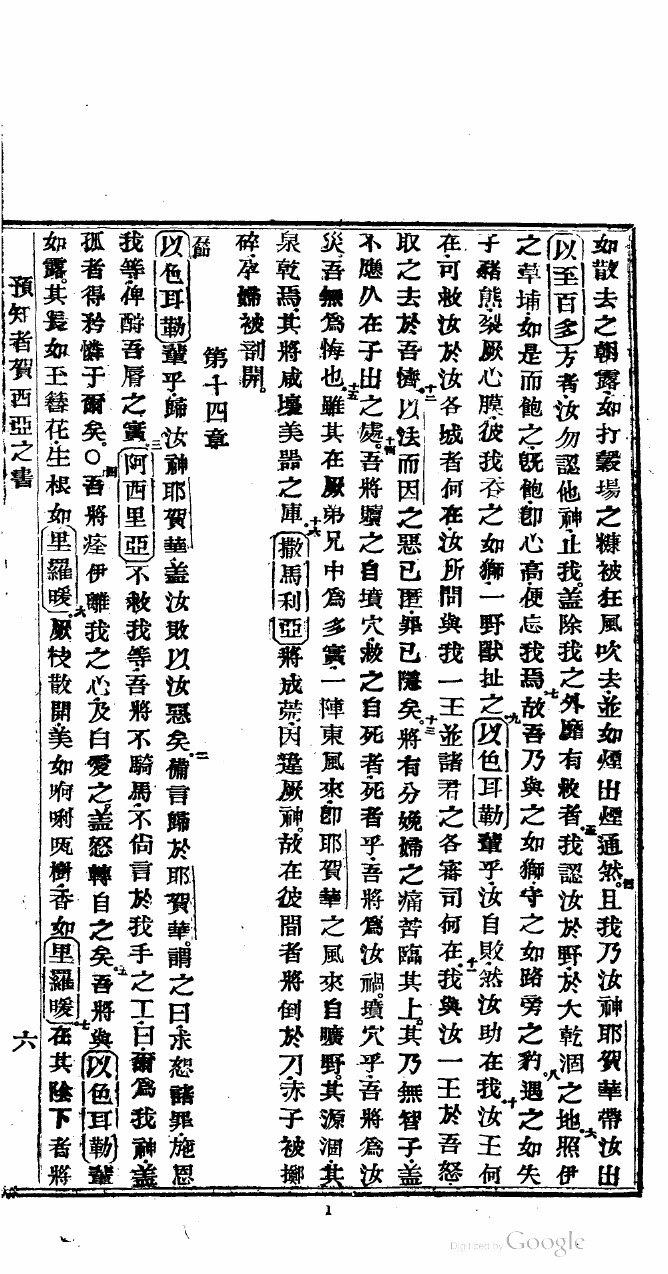 如散去之朝露如打穀場之糠被狂風吹去並如煙出煙通然四且我乃汝神耶賀華帶汝出
以至百多方者汝勿認他神止我蓋除我之外靡有救者五我認汝於野於大乾涸之地六照伊
之草埔如是而飽之既飽卽心高便忘我焉七故吾乃與之如獅守之如路旁之豹八遇之如失
子豬熊裂厥心膜彼我吞之如獅一野獸扯之九以色耳勒輩乎汝自敗然汝助在我十汝王何
在可救汝於汝各城者何在汝所問與我一王並諸君之各審司何在十一我與汝一王於吾怒
取之去於吾憤十二以法而因之惡已匿罪已隱矣十三將有分娩婦之痛苦臨其上其乃無智子蓋
不應久在子出之處十四吾將贖之自墳穴救之自死者死者乎吾將為汝禍墳穴乎吾將為汝
災吾無為悔也十五雖其在厥弟兄中為多實一陣東風來卽耶賀華之風來自曠野其源涸其
泉乾焉其將咸壞美器之庫十六撒馬利亞將成荒因違厥神故在彼間者將倒於刀赤子被擲
碎孕婦被剖開
第十四章
以色耳勒輩乎歸汝神耶賀華蓋汝敗以汝惡矣二備言歸於耶賀華謂之曰求恕諸罪施恩
我等俾酧吾脣之實三阿西里亞不救我等吾將不騎馬不尙言於我手之工曰爾為我神蓋
孤者得矜憐于爾矣○四吾將痊伊離我之心及白愛之蓋怒轉自之矣五吾將與以色耳勒輩
如露其長如玉簪花生根如里羅暖六厥枝散開美如哬唎㕭樹香如里羅暖七在其陰下者將
預知者賀西亞之書
六
1
Digitized by Google